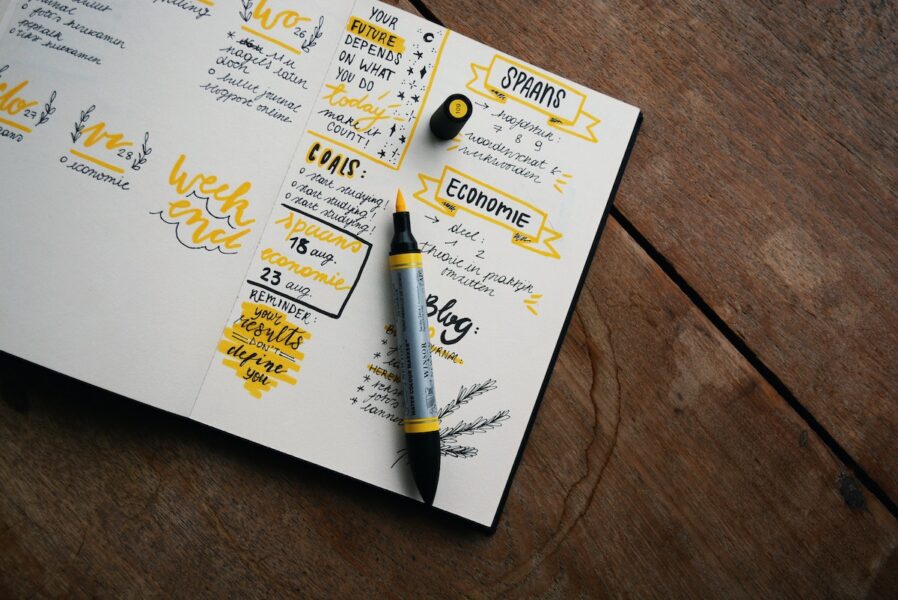 journal
foto's herkansen
peptalk
herkansen
wo
26
nagels laten
doen
bullet journal
blogpost online
do
27
vr
28
economie
week
end
YOUR
FUTURE
DEPENDS
ON WHAT
YOU DO
today
make it
COUNT!
GOALS:
start studying!
start studying!
start studying!
spaans
18 aug.
economie
23 aug.
REMINDER:
your
results
DON'T
define
you
SPAANS
→ hoofdstuk:
7 8 9
woordenschat &
werkwoorden
ECONOMIE
→ deel:
1 2
theorie in praktijk
omzetten
Blog:
JOURNAL
* foto's
* banner
WATER COLOUR MARKER
WINSOR